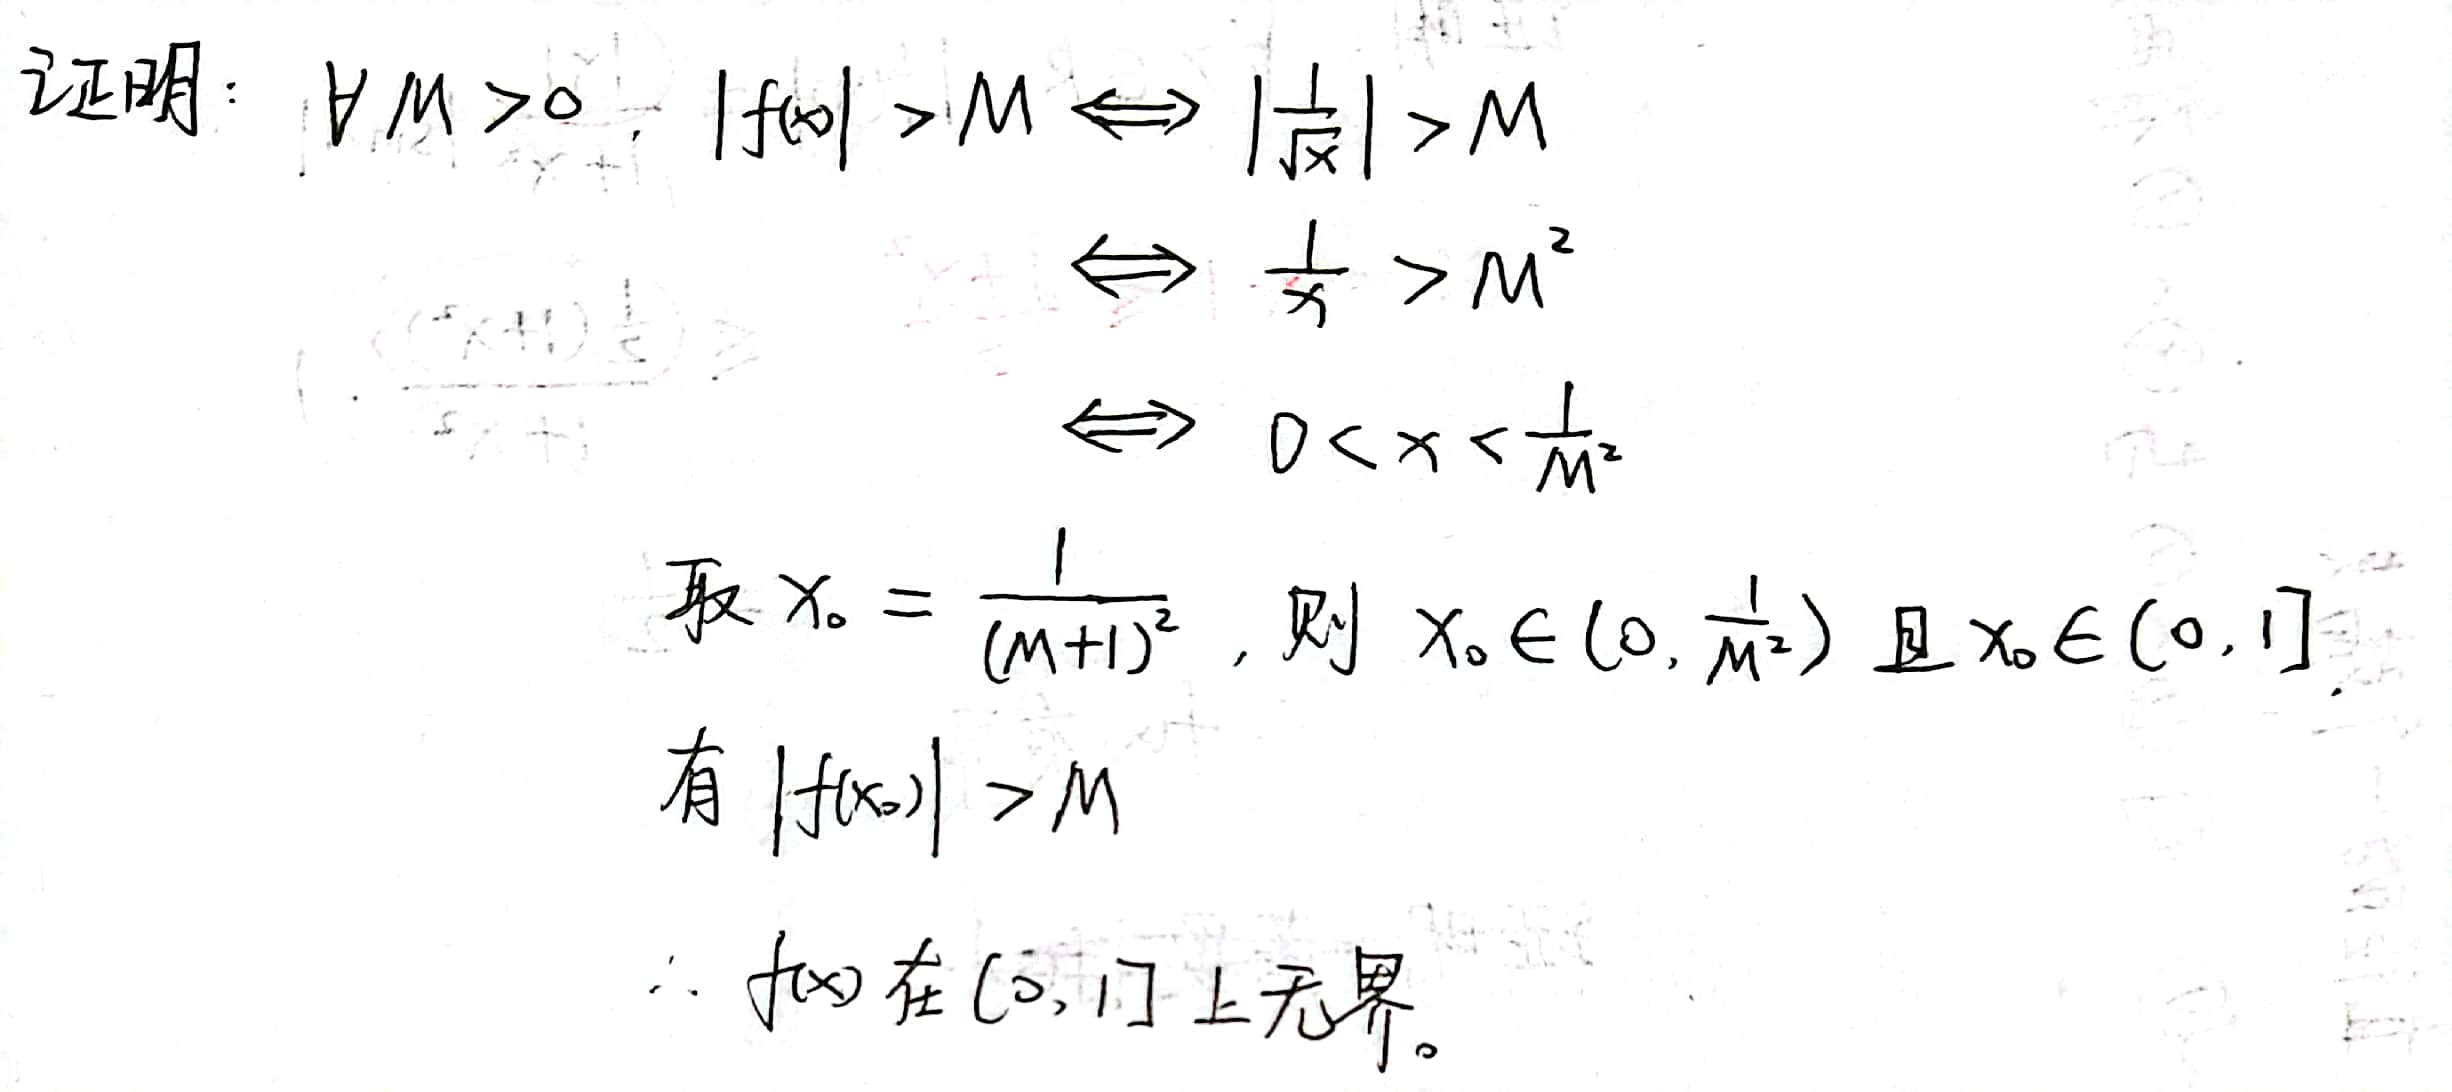 证明: ∀ M > 0, |f(x)| > M ⟺ |1/√x| > M
⟺ 1/x > M²
⟺ 0 < x < 1/M²
取 x₀ = 1/(M+1)², 则 x₀ ∈ (0, 1/M²) 且 x₀ ∈ (0, 1].
有 |f(x₀)| > M
∴ f(x) 在 (0, 1] 上无界。